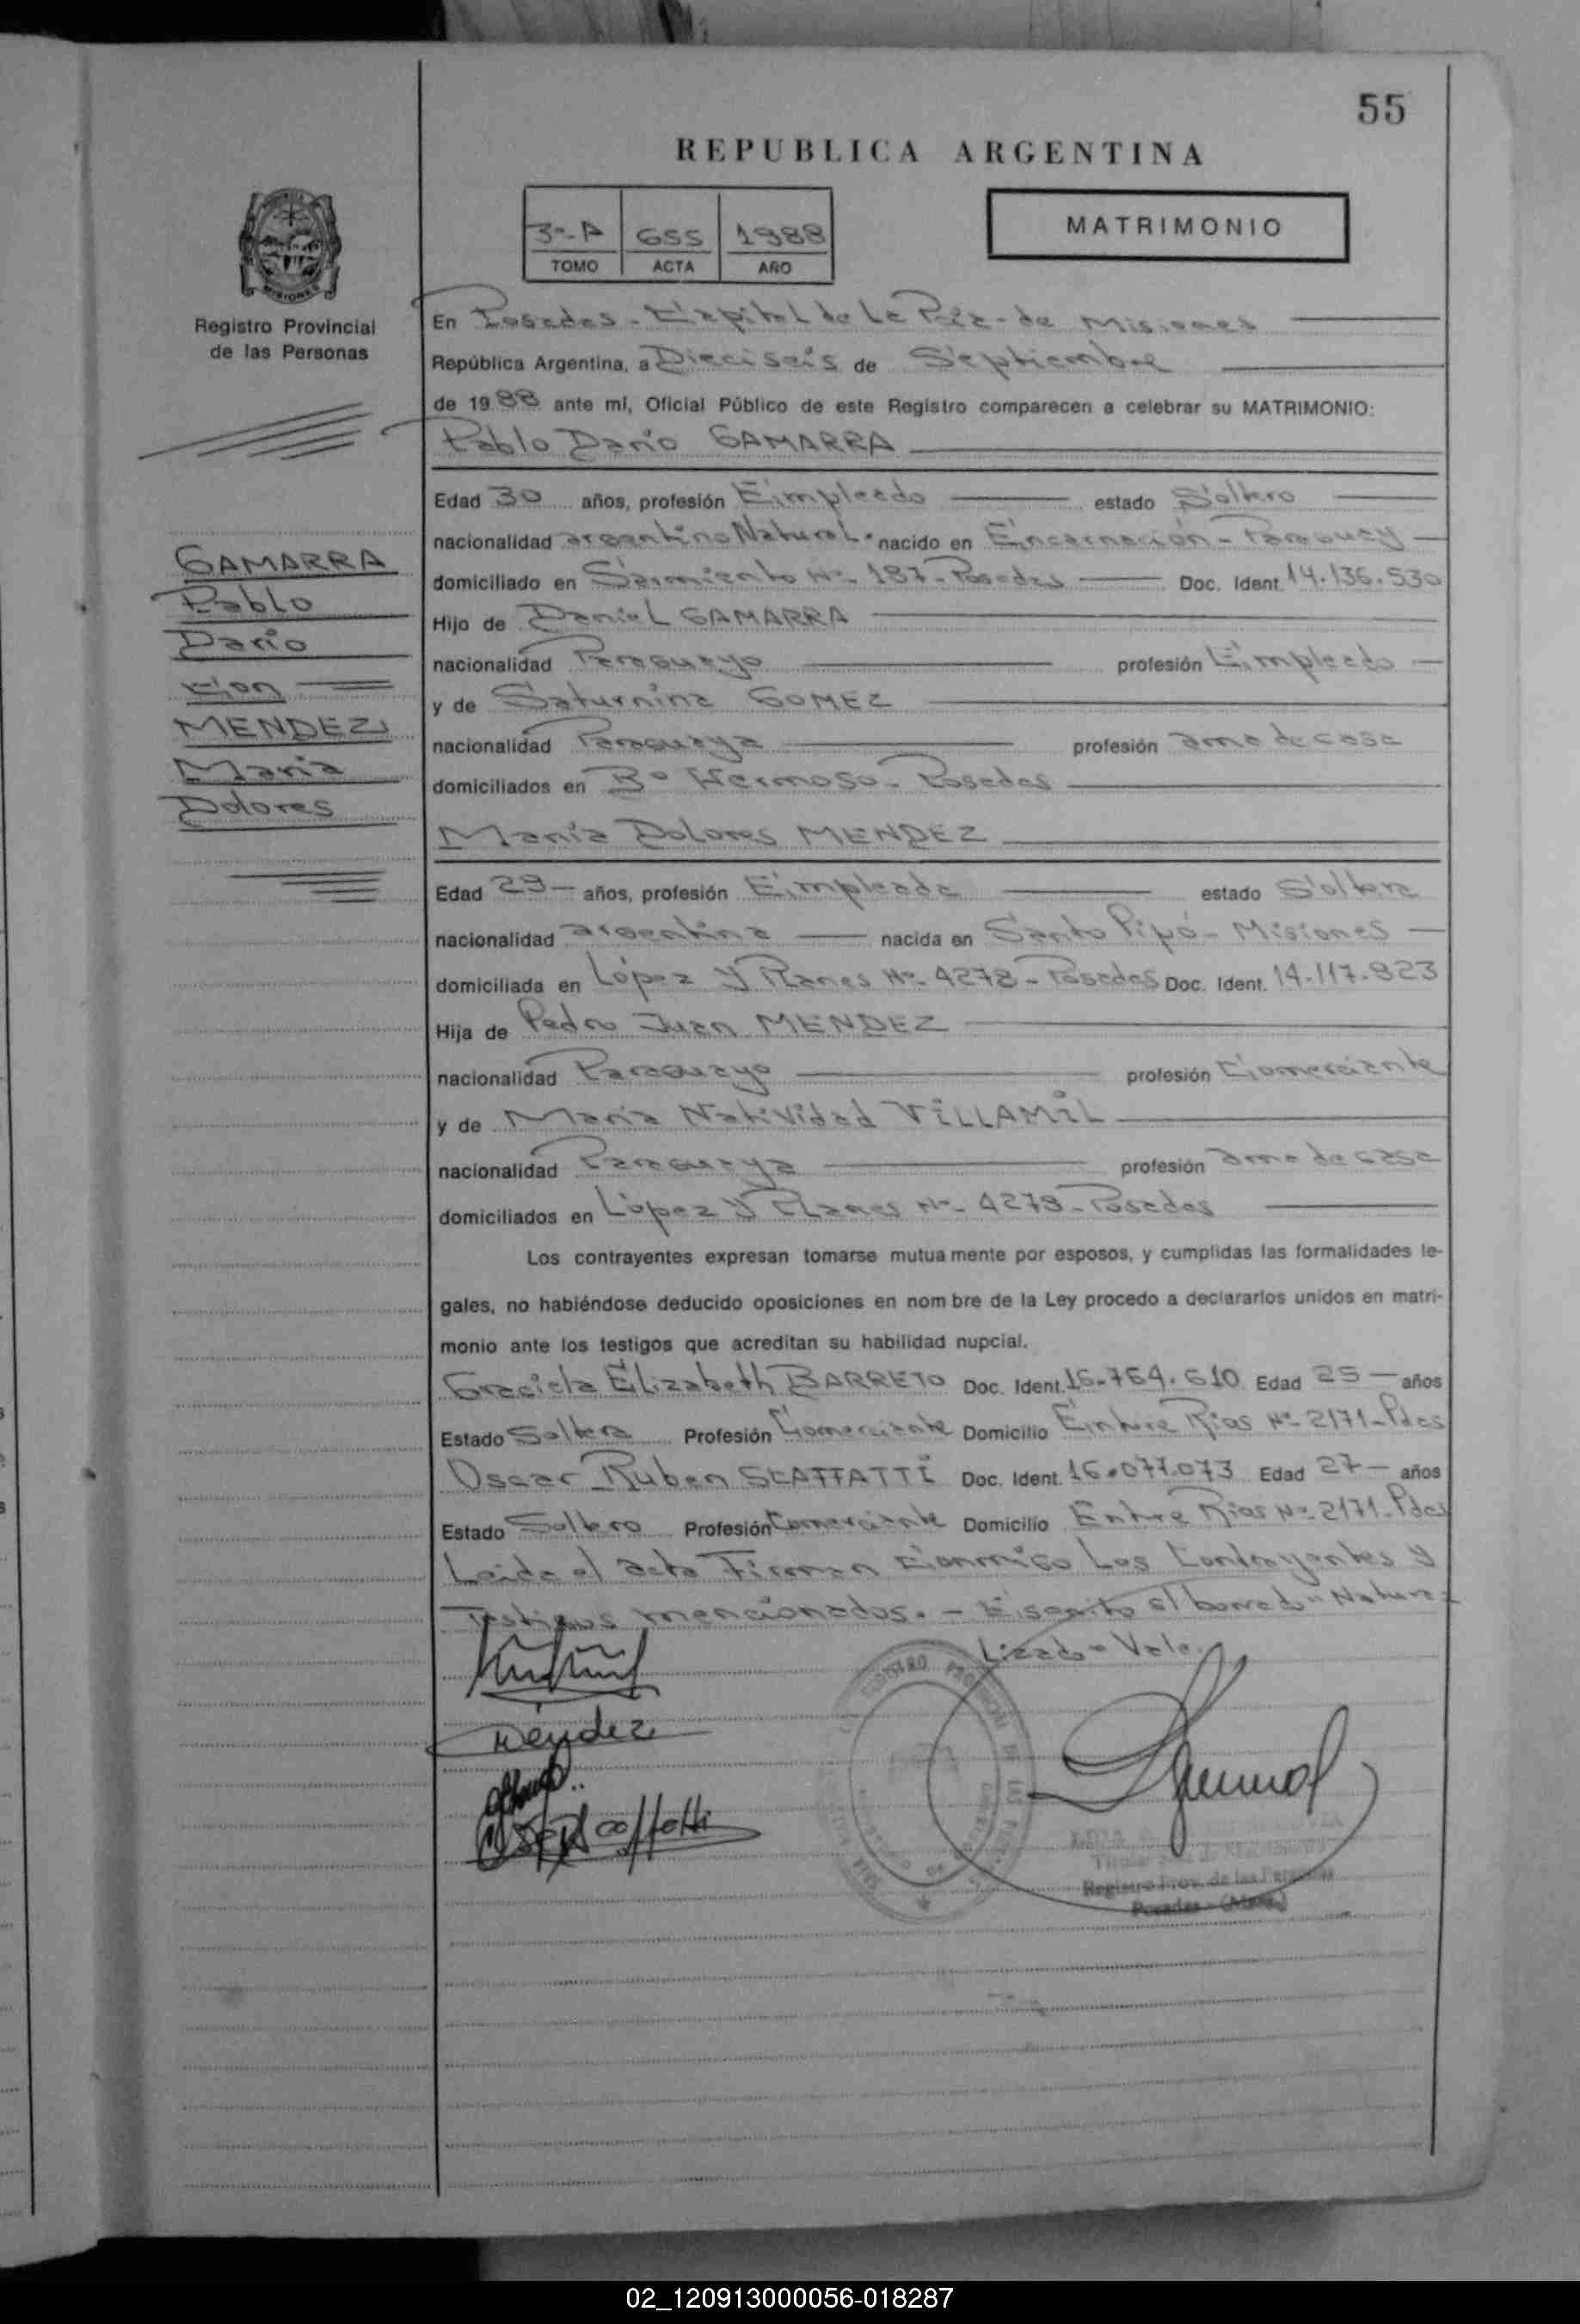 55
REPUBLICA ARGENTINA
3º-A 655 1988
TOMO ACTA AÑO
MATRIMONIO
MISIONES
Registro Provincial
de las Personas
En Posadas - Capital de La Pcia - de Misiones
República Argentina, a Dieciseis de Septiembre
de 1988 ante mí, Oficial Público de este Registro comparecen a celebrar su MATRIMONIO:
Pablo Darío GAMARRA
Edad 30 años, profesión Empleado estado Soltero
nacionalidad argentino Natural. nacido en Encarnación - Paraguay
domiciliado en Sarmiento Nº- 187- Posadas Doc. Ident. 14.136.530
Hijo de Daniel GAMARRA
nacionalidad Paraguayo profesión Empleado
y de Saturnina GOMEZ
nacionalidad Paraguaya profesión ama de casa
domiciliados en Bº Hermoso - Posadas
GAMARRA
Pablo
Darío
Con
MENDEZ
María
Dolores
María Dolores MENDEZ
Edad 29 años, profesión Empleada estado Soltera
nacionalidad argentina nacida en Santo Pipó - Misiones
domiciliada en López Y Planes Nº- 4278 - Posadas Doc. Ident. 14.117.923
Hija de Pedro Juan MENDEZ
nacionalidad Paraguayo profesión Comerciante
y de María Natividad VILLAMIL
nacionalidad Paraguaya profesión ama de casa
domiciliados en López Y Planes Nº- 4278 - Posadas
Los contrayentes expresan tomarse mutua mente por esposos, y cumplidas las formalidades le-
gales, no habiéndose deducido oposiciones en nom bre de la Ley procedo a declararlos unidos en matri-
monio ante los testigos que acreditan su habilidad nupcial.
Graciela Elizabeth BARRETO Doc. Ident. 16.764.610 Edad 25 años
Estado Soltera Profesión Comerciante Domicilio Entre Rios Nº- 2171 - Pdas
Oscar Ruben SCAFFATTI Doc. Ident. 16.077.073 Edad 27 años
Estado Soltero Profesión Comerciante Domicilio Entre Rios Nº- 2171 - Pdas
Leida el acta Firman Conmigo Los Contrayentes y
Testigos mencionados. - Escrito al borrado "Natura-
Lizado - Vale.
Méndez
Registro Prov. de las Personas
Posadas - (Mnes.)
02_120913000056-018287